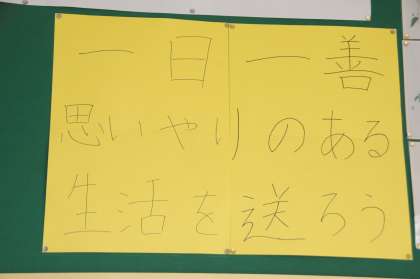 一日一善
思いやりのある
生活を送ろう